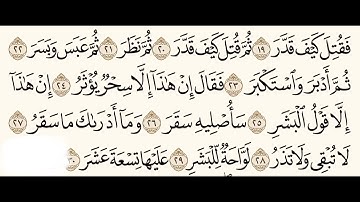 فَقُتِلَ كَيْفَ قَدَّرَ ١٩ ثُمَّ قُتِلَ كَيْفَ قَدَّرَ ٢٠ ثُمَّ نَظَرَ ٢١ ثُمَّ عَبَسَ وَبَسَرَ ٢٢
ثُمَّ أَدْبَرَ وَٱسْتَكْبَرَ ٢٣ فَقَالَ إِنْ هَٰذَآ إِلَّا سِحْرٌ يُؤْثَرُ ٢٤ إِنْ هَٰذَآ
إِلَّا قَوْلُ ٱلْبَشَرِ ٢٥ سَأُصْلِيهِ سَقَرَ ٢٦ وَمَآ أَدْرَىٰكَ مَا سَقَرُ ٢٧
لَا تُبْقِى وَلَا تَذَرُ ٢٨ لَوَّاحَةٌ لِّلْبَشَرِ ٢٩ عَلَيْهَا تِسْعَةَ عَشَرَ ٣٠